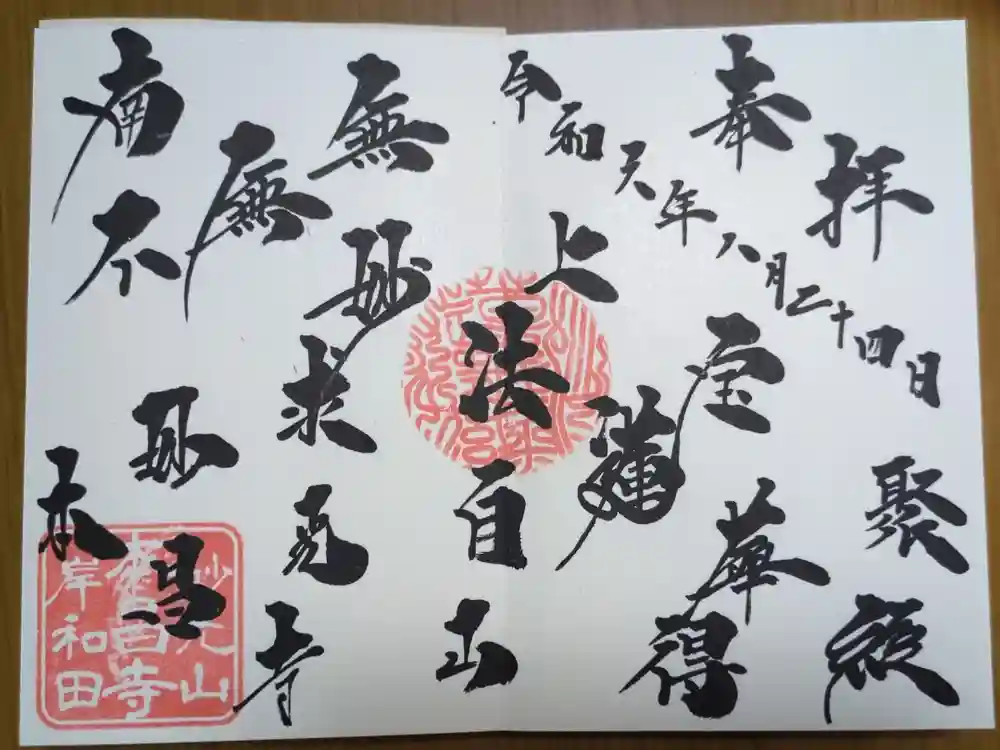 奉拝
令和元年八月二十四日
無上宝聚
南無妙法蓮華経
不求自得
妙光山
本昌寺
妙光山
本昌寺
岸和田